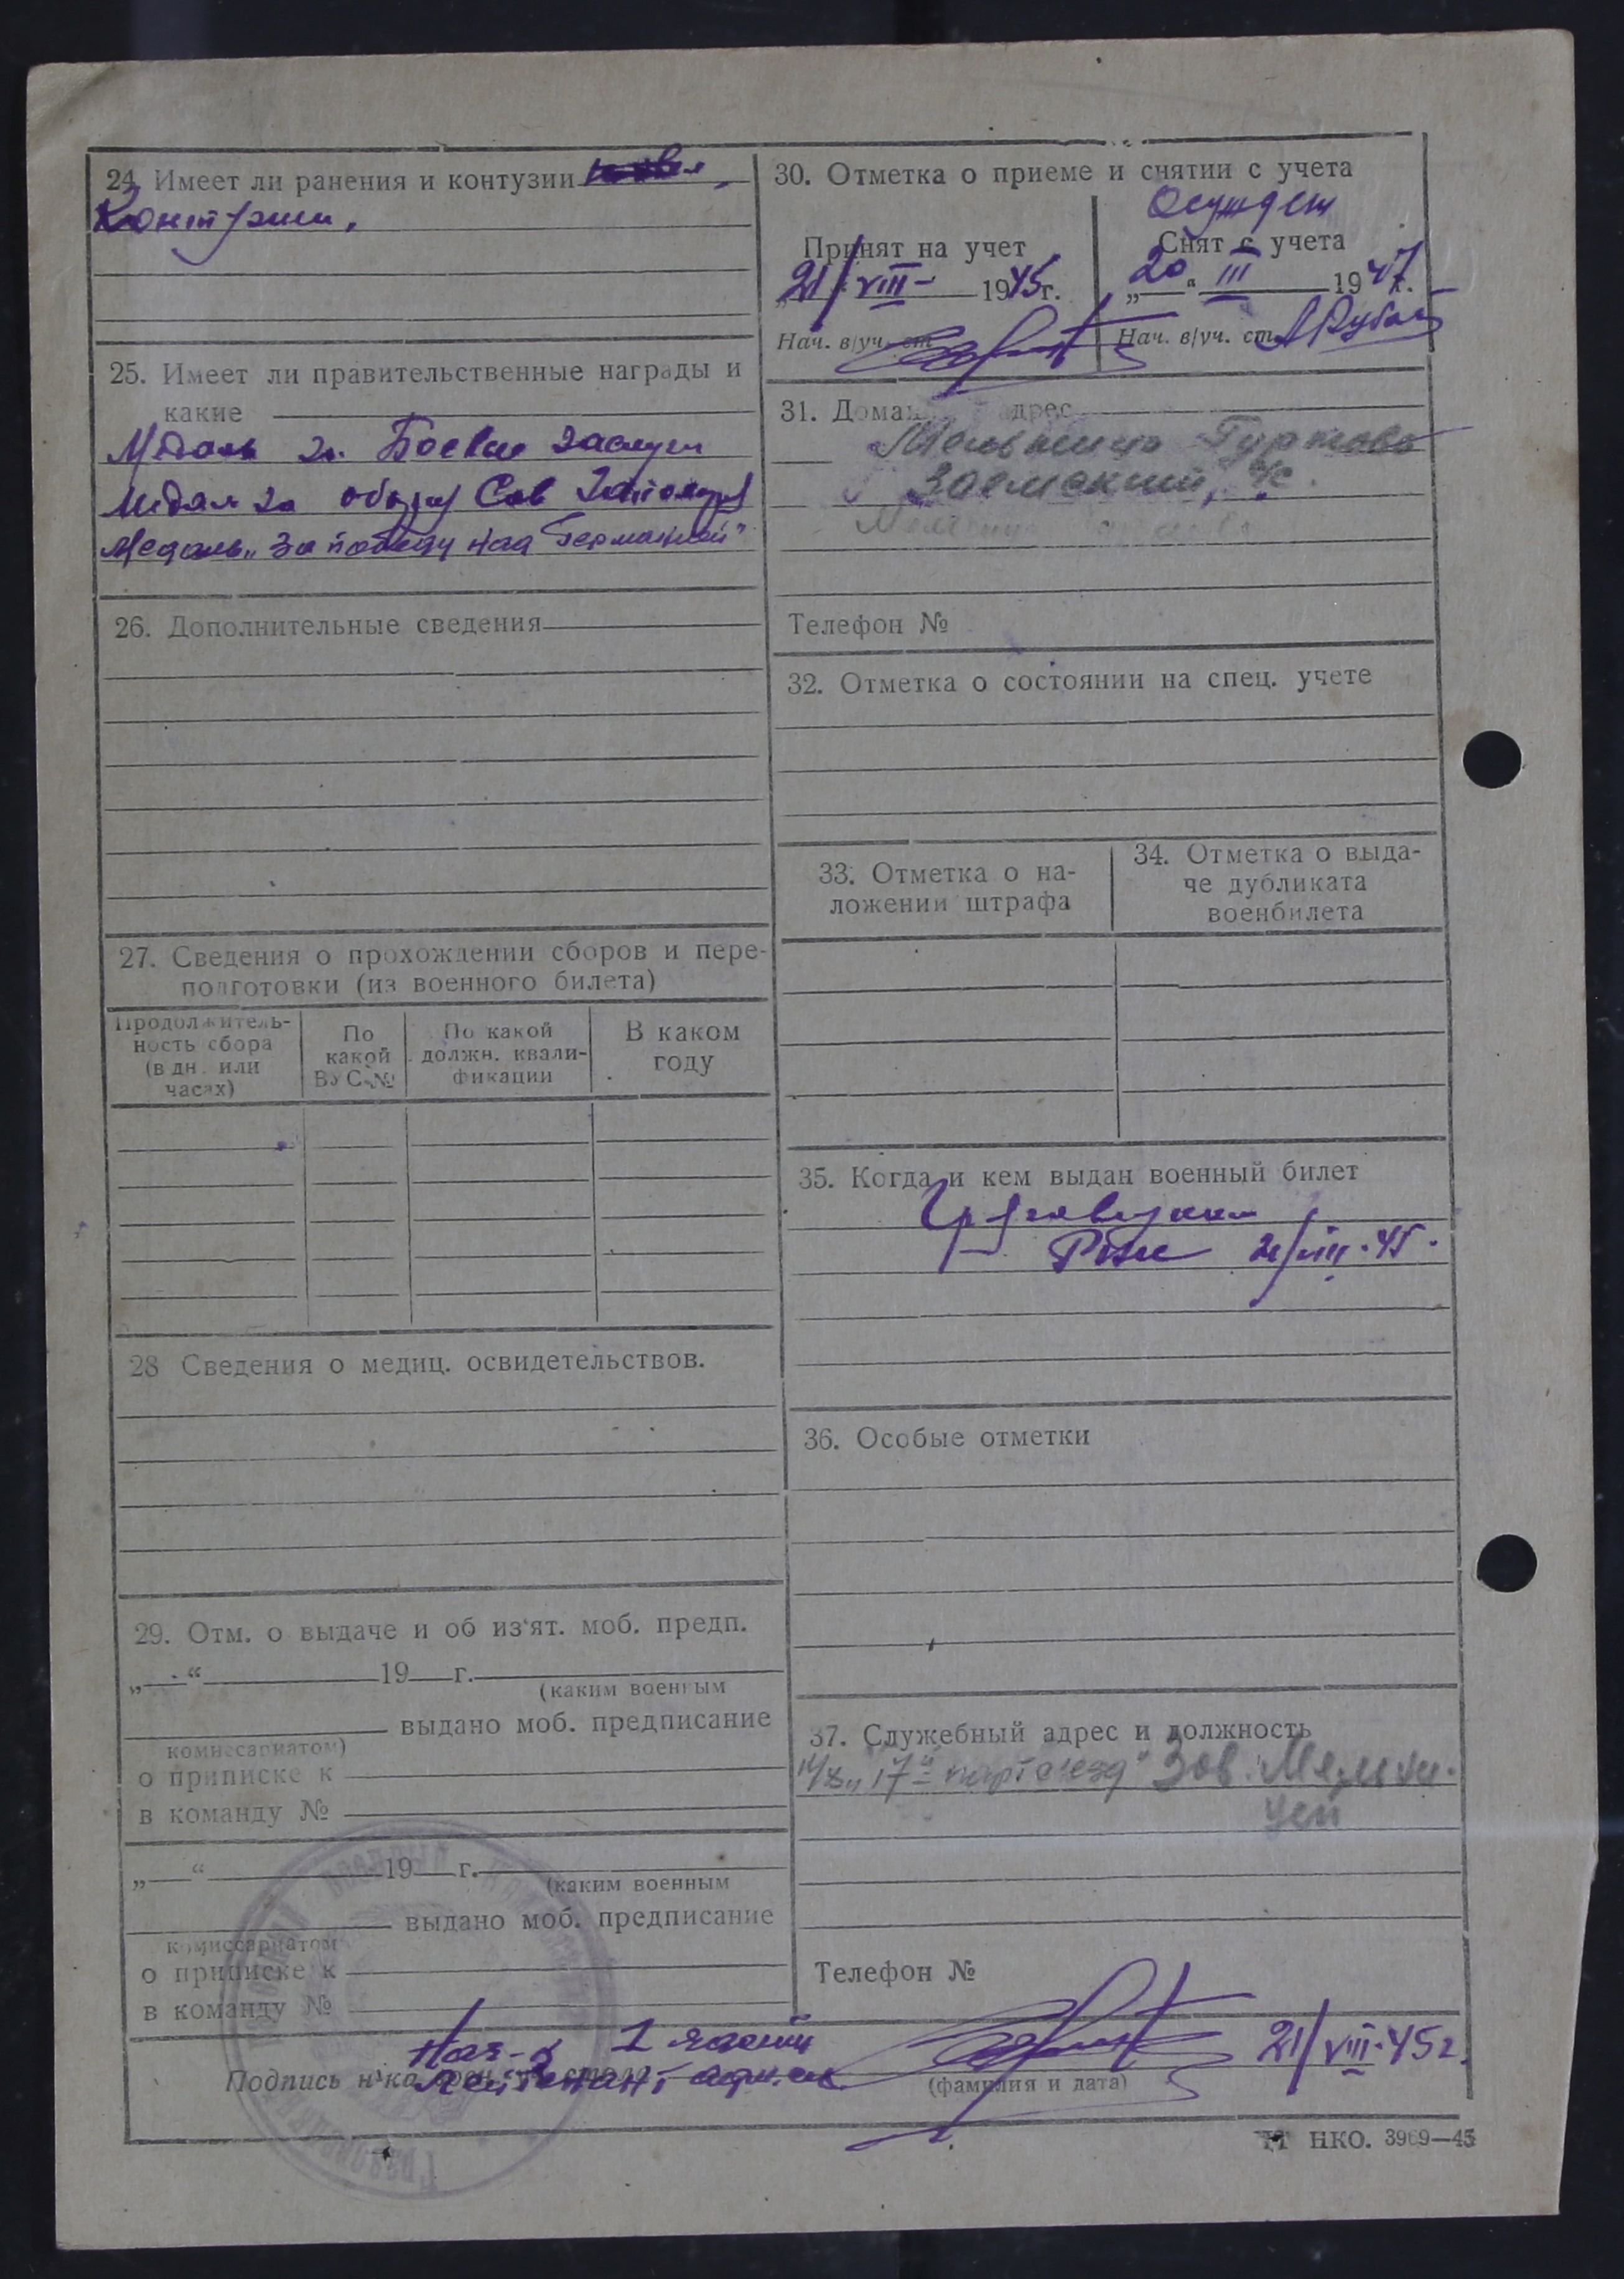 24. Имеет ли ранения и контузии
Контузии.
25. Имеет ли правительственные награды и
какие
Медаль за Боевые заслуги
Медаль за оборону Сов Заполярья
Медаль „За победу над Германией"
26. Дополнительные сведения
27. Сведения о прохождении сборов и пере-
подготовки (из военного билета)
Продолжитель-
ность сбора
(в дн. или
часах)
По
какой
ВУС-№
По какой
должн. квали-
фикации
В каком
году
28 Сведения о медиц. освидетельствов.
29. Отм. о выдаче и об из'ят. моб. предп.
„ “ 19 г.
(каким военным
выдано моб. предписание
комиссариатом)
о приписке к
в команду №
„ “ 19 г.
(каким военным
выдано моб. предписание
комиссариатом
о приписке к
в команду №
30. Отметка о приеме и снятии с учета
Осужден
Принят на учет
21/VIII- 1945г.
Нач. в/уч. ст
Снят с учета
„20“ III 1947г.
Нач. в/уч. ст
31. Домаш адрес
Заемский, с/с.
Телефон №
32. Отметка о состоянии на спец. учете
33. Отметка о на-
ложении штрафа
34. Отметка о выда-
че дубликата
военбилета
35. Когда и кем выдан военный билет
РВК 21/VIII·45·
36. Особые отметки
37. Служебный адрес и должность
к/з „17й партсъезд" Зав. Мельни-
цей
Телефон №
Нач-к 1 части
Подпись н-ка стола
Лейтенант адм. сл.
(фамилия и дата)
21/VIII·45г.
НКО. 3969—45